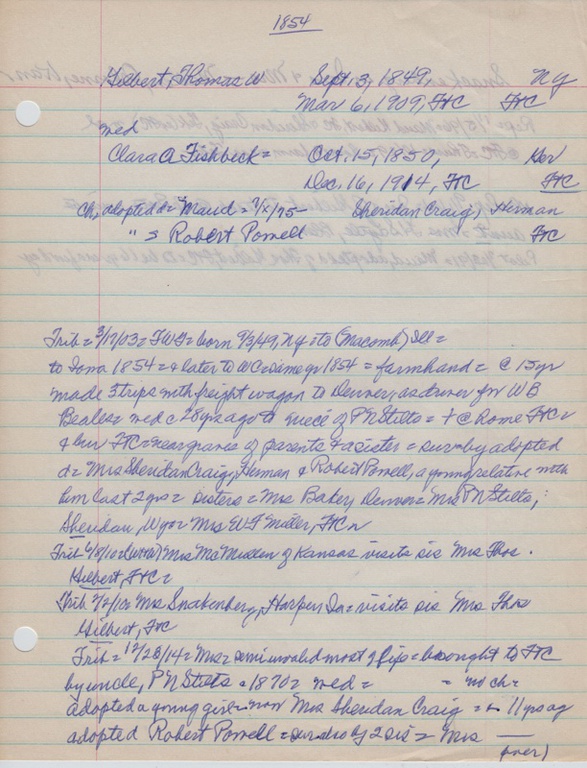 1854
Gilbert, Thomas W Sept. 3, 1849, NY
Mar 6, 1909, FtC FtC
wed
Clara A Fishbeck = Oct. 15, 1850, Ger
Dec. 16, 1914, FtC FtC
Ch, adopted d = Maud = Sheridan Craig, Herman
" s Robert Powell FtC
Trib = 3/12/03 = TWG = born 9/3/49, NY = to (Macomb) Ill =
to Iowa 1854 = & later to WC = same yr 1854 = farmhand = @ 15 yr
made 3 trips with freight wagon to Denver, as driver for WB
Beales = wed c 28 yrs ago to niece of PN Stilts = + @ Rome FtC
& bur FtC = near graves of parents & a sister = surv by adopted
d = Mrs Sheridan Craig, Herman & Robert Powell, a young relative with
him last 2 yrs = sisters = Mrs Baker, Denver = Mrs PN Stilts,
Sheridan, Wyo = Mrs WF Miller, FtC
Trib Mrs McMillen of Kansas visits sis Mrs Thos.
Gilbert, FtC =
Trib Mrs Snakenberg, Harper, Ia = visits sis Mrs Thos
Gilbert, FtC
Trib = 12/28/14 = Mrs = semi invalid most of life = brought to FtC
by uncle, PN Stilts = 1870 = wed = = no ch =
adopted a young girl = now Mrs Sheridan Craig = 11 yrs ag
adopted Robert Powell = surv also by 2 sis = Mrs
(over)